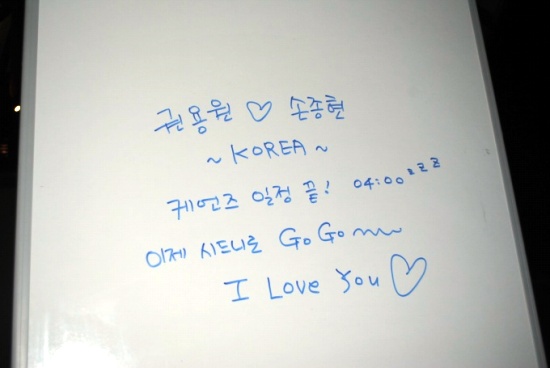 권용원 ♡ 손종현
~ KOREA ~
케언즈 일정 끝! 04:00 zzz
이제 시드니로 GoGo~~
I Love You ♡